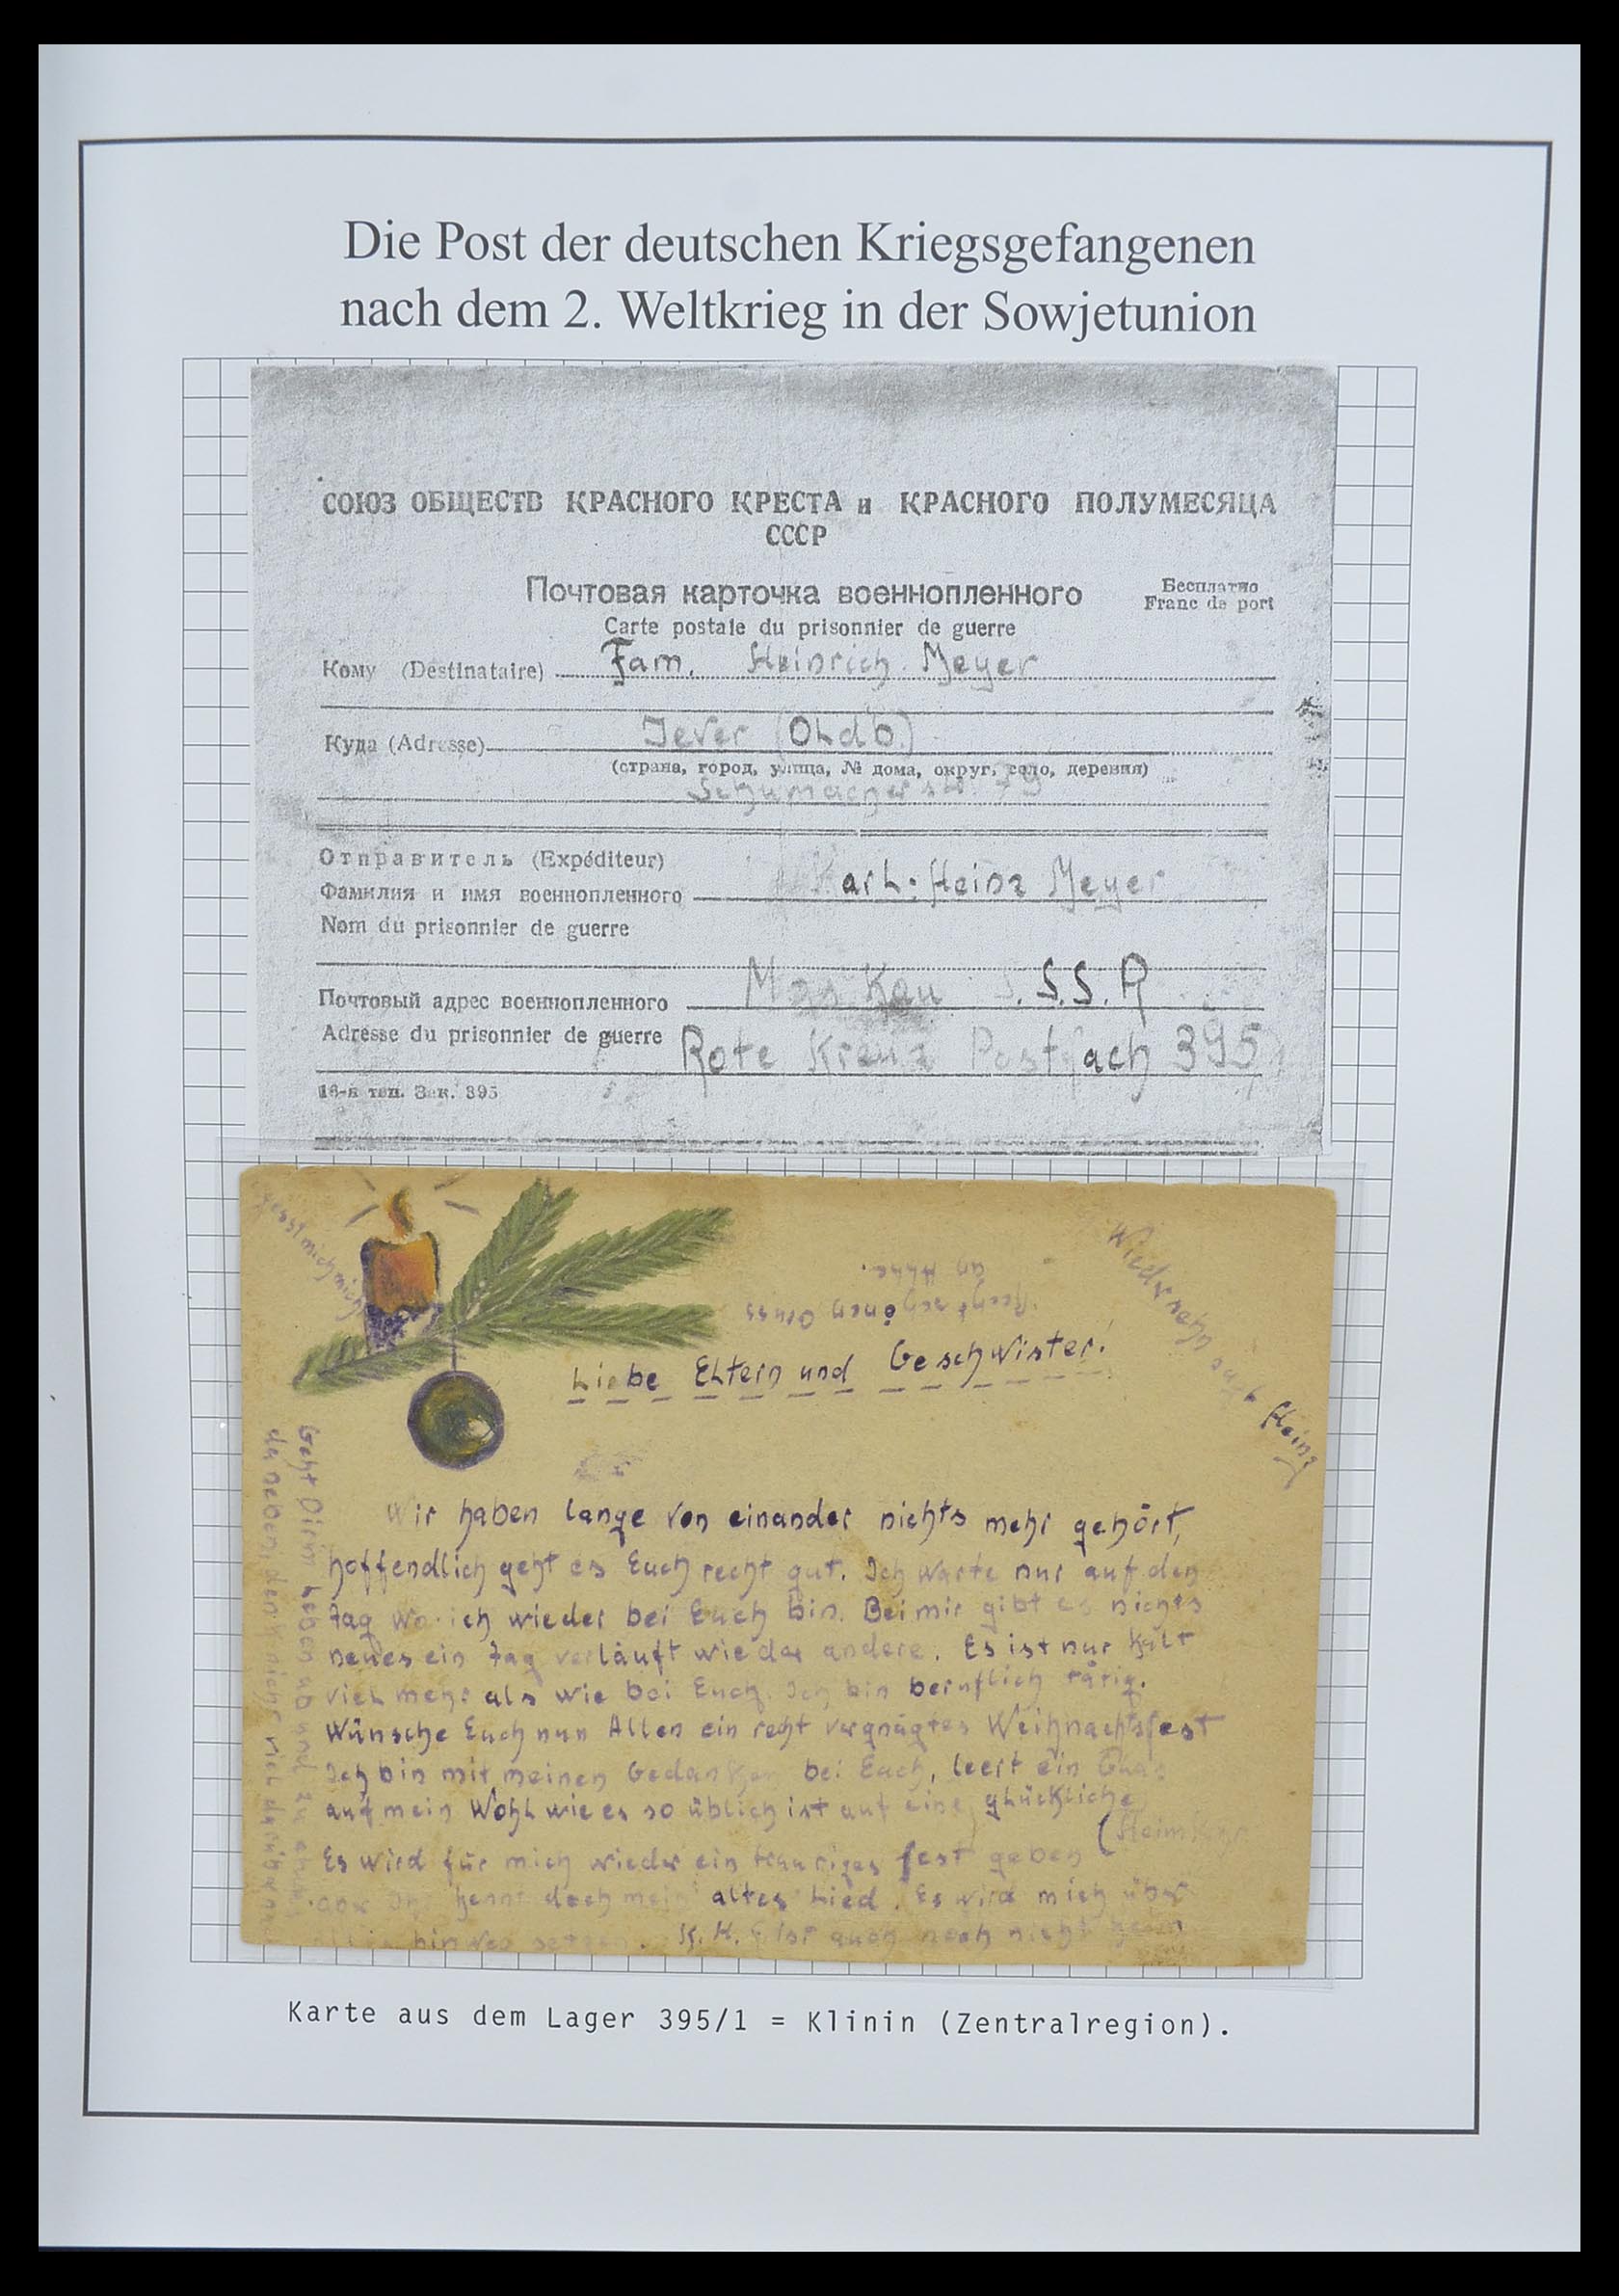 Die Post der deutschen Kriegsgefangenen
nach dem 2. Weltkrieg in der Sowjetunion
СОЮЗ ОБЩЕСТВ КРАСНОГО КРЕСТА и КРАСНОГО ПОЛУМЕСЯЦА
СССР
Почтовая карточка военнопленного
Бесплатно
Carte postale du prisonnier de guerre
Franc de port
Кому (Destinataire) Fam. Heinrich Meyer
Куда (Adresse) Jever (Oldb.)
(страна, город, улица, № дома, округ, село, деревня)
Schumacherstr. 79
Отправитель (Expéditeur)
Фамилия и имя военнопленного Karl-Heinz Meyer
Nom du prisonnier de guerre
Почтовый адрес военнопленного Moskau S.S.R
Adresse du prisonnier de guerre Rote Kreuz Postfach 395
16-я тип. Зак. 395
Wiedersehn Heinz
Recht schönen Gruss
an
Liebe Eltern und Geschwister!
Wir haben lange von einander nichts mehr gehört,
hoffendlich geht es Euch recht gut. Ich warte nur auf den
Tag wo ich wieder bei Euch bin. Bei mir gibt es nichts
neues ein Tag verläuft wie der andere. Es ist nur kalt
viel mehr als wie bei Euch. Ich bin beruflich tätig.
Wünsche Euch nun Allen ein recht vergnügtes Weihnachtsfest
Ich bin mit meinen Gedanken bei Euch, leert ein Glas
auf mein Wohl wie es so üblich ist auf eine glückliche
(Heimkehr
Es wird für mich wieder ein trauriges fest geben
aber Ihr kennt doch mein altes Lied. Es wird mich über
hinweg setzen. K. H. ist auch noch nicht
Karte aus dem Lager 395/1 = Klinin (Zentralregion).